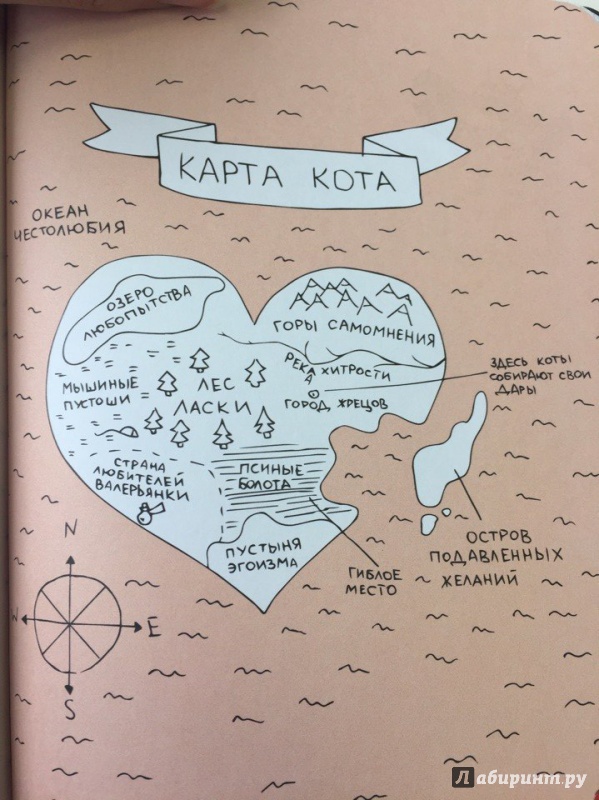 КАРТА КОТА
ОКЕАН
ЧЕСТОЛЮБИЯ
ОЗЕРО
ЛЮБОПЫТСТВА
ГОРЫ САМОМНЕНИЯ
РЕКА ХИТРОСТИ
ЗДЕСЬ КОТЫ
СОБИРАЮТ СВОИ
ДАРЫ
МЫШИНЫЕ
ПУСТОШИ
ЛЕС
ЛАСКИ
ГОРОД ЖРЕЦОВ
СТРАНА
ЛЮБИТЕЛЕЙ
ВАЛЕРЬЯНКИ
ПСИНЫЕ
БОЛОТА
ПУСТЫНЯ
ЭГОИЗМА
ГИБЛОЕ
МЕСТО
ОСТРОВ
ПОДАВЛЕННЫХ
ЖЕЛАНИЙ
N
W
E
S
Лабиринт.ру